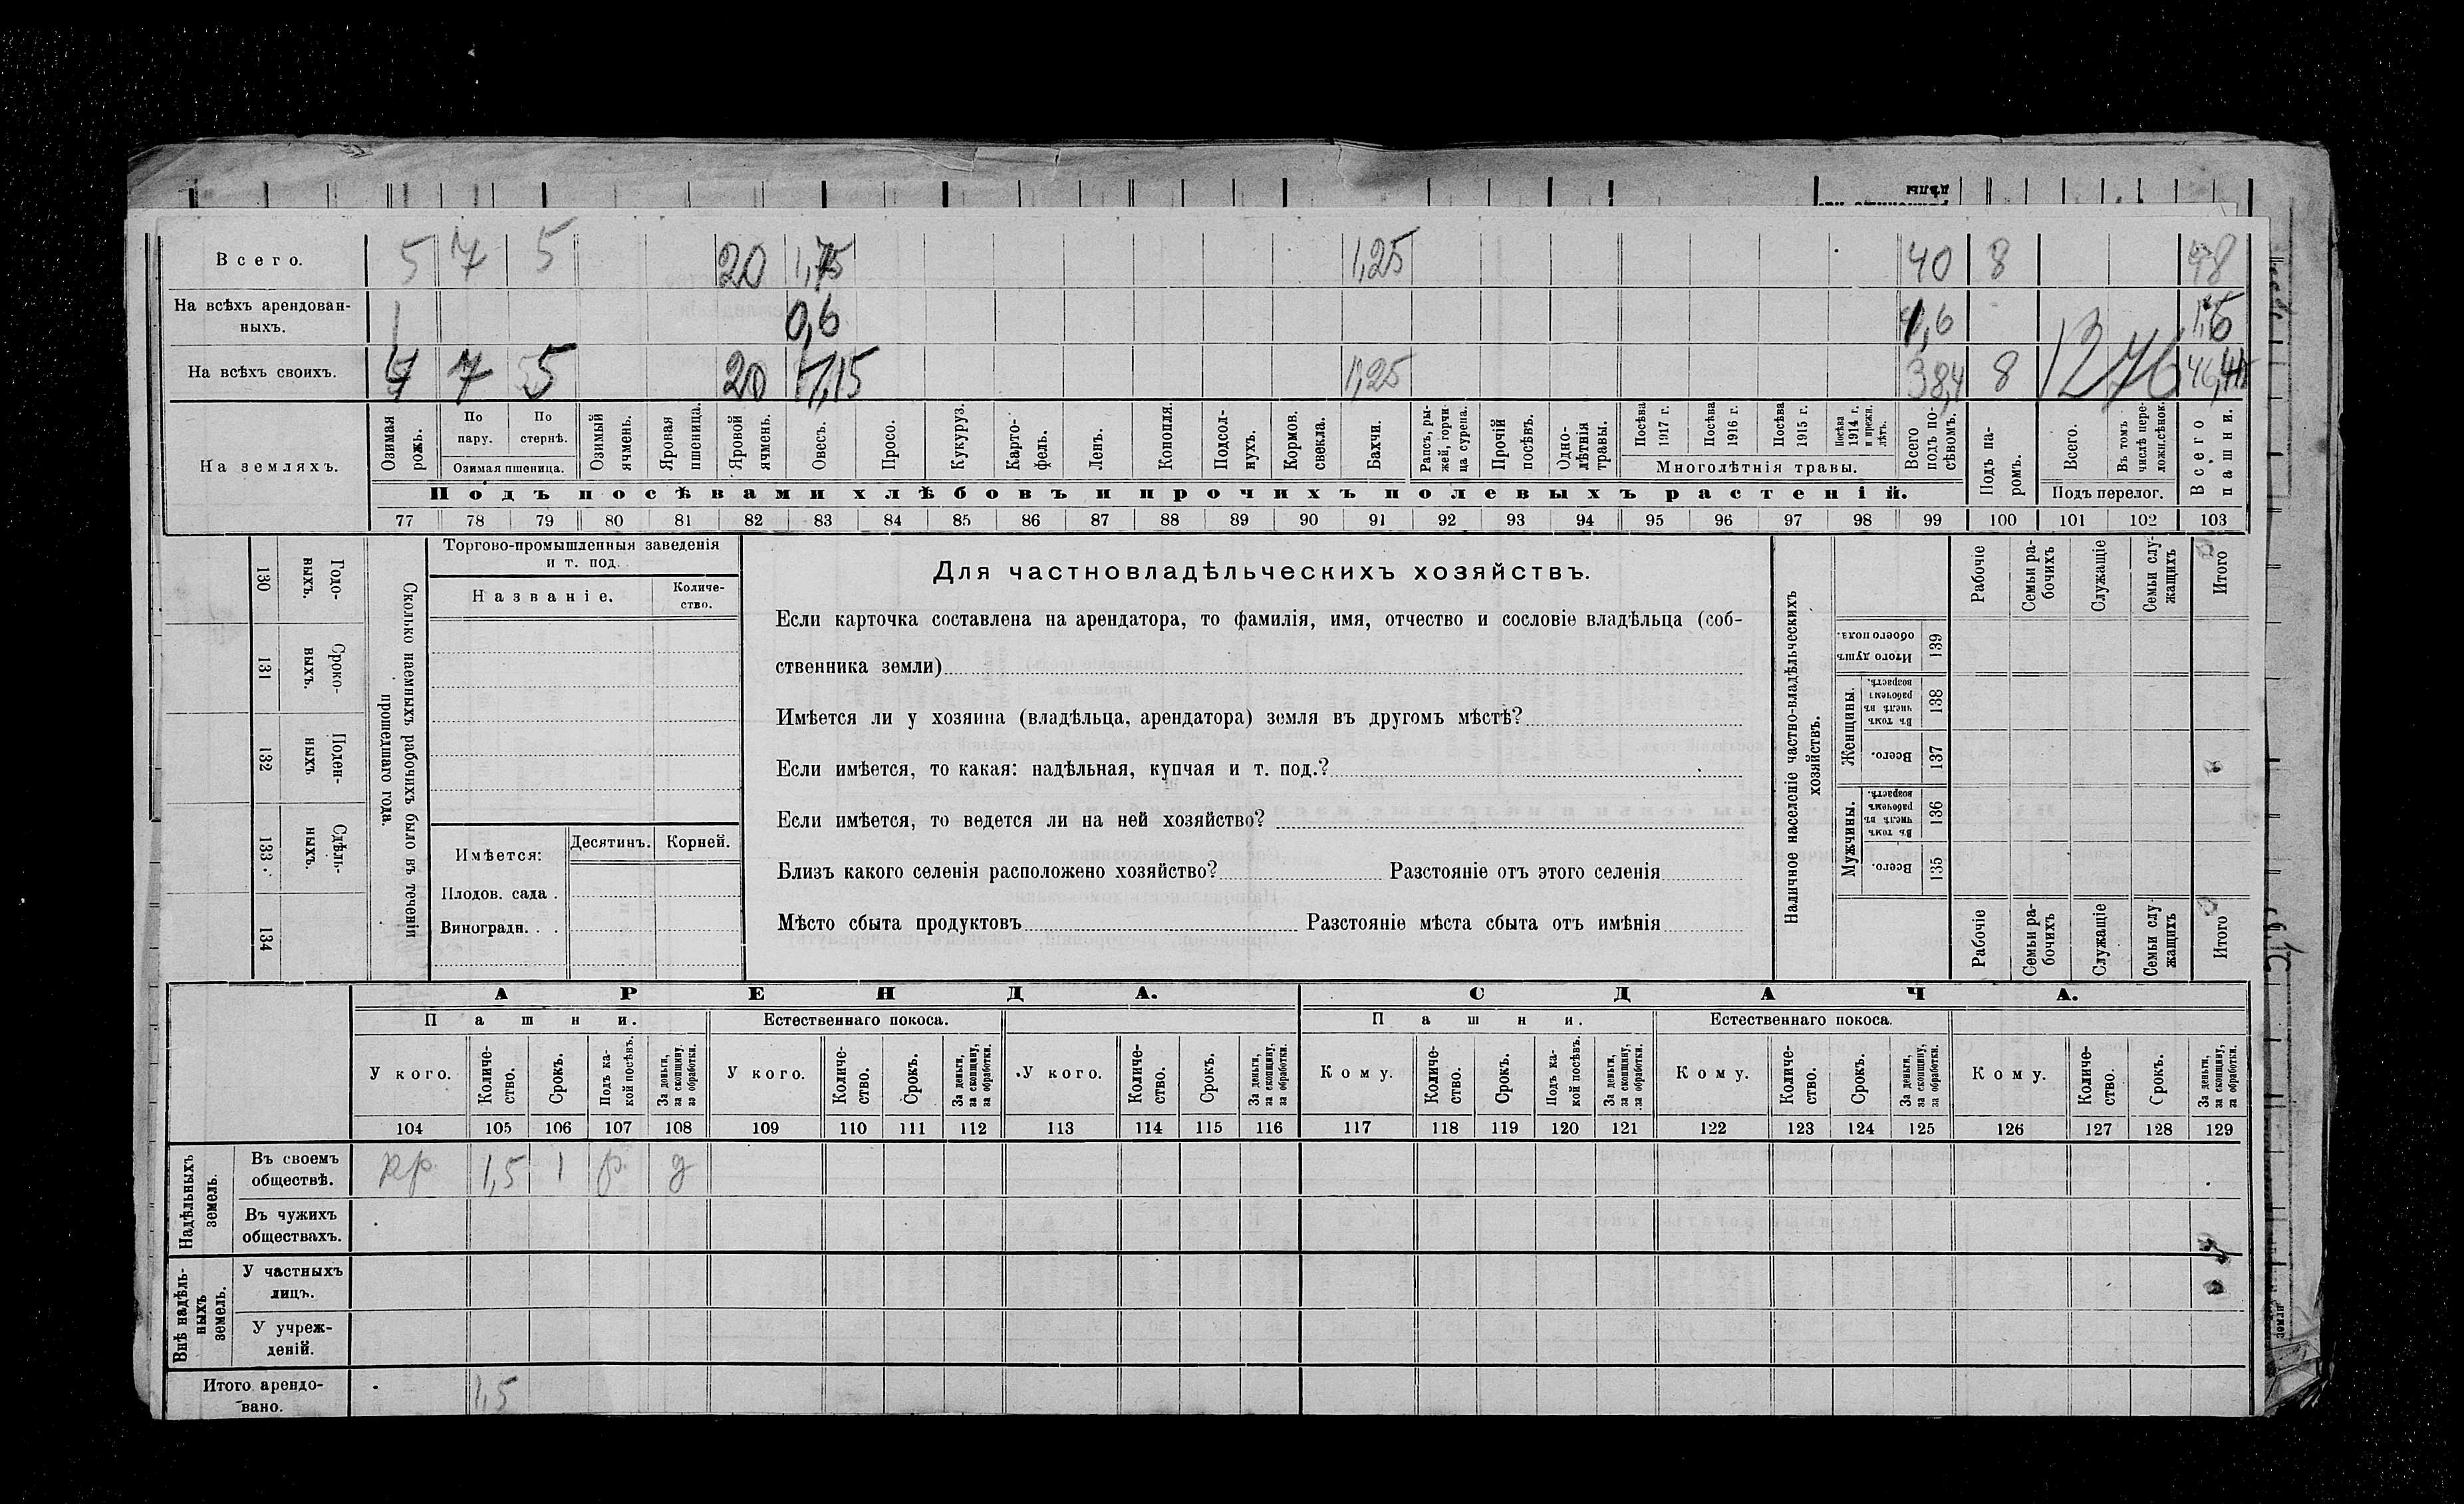 Всего. 5 7 5 20 1,75 1,25 40 8 48
На всѣхъ арендован-
ныхъ. 1 0,6 1,6 1,6
На всѣхъ своихъ. 4 7 5 20 1,15 1,25 38,4 8 46,4
1276
На земляхъ.
Озимая рожь.
По пару.
По стернѣ.
Озимая пшеница.
Озимый ячмень.
Яровая пшеница.
Яровой ячмень.
Овесъ.
Просо.
Кукуруз.
Карто-
фель.
Ленъ.
Конопля.
Подсол-
нухъ.
Кормов. свекла.
Бахчи.
Рапсъ, ры-
жей, горчи
ца сурепа.
Прочій посѣвъ.
Одно-
лѣтнія
травы.
Посѣва 1917 г.
Посѣва 1916 г.
Посѣва 1915 г.
Посѣва 1914 г. и прежн. лѣтъ.
Многолѣтнія травы.
Всего подъ по-
сѣвомъ.
Подъ посѣвами хлѣбовъ и прочихъ полевыхъ растеній.
Подъ па-
ромъ.
Всего.
Въ томъ числѣ пере-
ложн.сѣнок.
Подъ перелог.
Всего пашни.
77 78 79 80 81 82 83 84 85 86 87 88 89 90 91 92 93 94 95 96 97 98 99 100 101 102 103
Сколько наемныхъ рабочихъ было въ теченіи
прошедшаго года.
Годо-
ныхъ.
130
Сроко-
выхъ.
131
Поден-
ныхъ
132
Сдѣль-
ныхъ.
133
134
Торгово-промышленныя заведенія
и т. под.
Названіе.
Количе-
ство.
Имѣется:
Десятинъ. Корней.
Плодов. сада .
Виноградн. . .
Для частновладѣльческихъ хозяйствъ.
Если карточка составлена на арендатора, то фамилія, имя, отчество и сословіе владѣльца (соб-
ственника земли)
Имѣется ли у хозяина (владѣльца, арендатора) земля въ другомъ мѣстѣ?
Если имѣется, то какая: надѣльная, купчая и т. под.?
Если имѣется, то ведется ли на ней хозяйство?
Близъ какого селенія расположено хозяйство? Разстояніе отъ этого селенія
Мѣсто сбыта продуктовъ Разстояніе мѣста сбыта отъ имѣнія
Наличное населеніе частно-владѣльческихъ
хозяйствъ.
Рабочіе
Семьи ра-
бочихъ
Служащіе
Семьи слу-
жащихъ
Итого
Итого душъ
обоего пола.
139
Женщины.
Въ томъ числѣ въ рабочемъ возрастѣ.
138
Всего.
137
Мужчины.
Въ томъ числѣ въ рабочемъ возрастѣ.
136
Всего.
135
Рабочіе
Семьи ра-
бочихъ
Служащіе
Семьи слу
жащихъ
Итого
АРЕНДА. СДАЧА.
Пашни. Естественнаго покоса. Пашни. Естественнаго покоса.
У кого.
Количе-
ство.
Срокъ.
Подъ ка-
кой посѣвъ.
За деньги,
за скопщину,
за обработки.
У кого.
Количе-
ство.
Срокъ.
За деньги,
за скопщину,
за обработки.
У кого.
Количе-
ство.
Срокъ.
За деньги,
за скопщину,
за обработки.
Кому.
Количе-
ство.
Срокъ.
Подъ ка-
кой посѣвъ.
За деньги,
за скопщину,
за обработки.
Кому.
Количе-
ство.
Срокъ.
За деньги,
за скопщину,
за обработки.
Кому.
Количе-
ство.
Срокъ.
За деньги,
за скопщину,
за обработки.
104 105 106 107 108 109 110 111 112 113 114 115 116 117 118 119 120 121 122 123 124 125 126 127 128 129
Надѣльныхъ
земель.
Въ своемъ
обществѣ. кр. 1,5 1 р. д
Въ чужихъ
обществахъ.
Внѣ надѣль-
ныхъ
земель.
У частныхъ
лицъ.
У учреж-
деній.
Итого арендо-
вано. 1,5